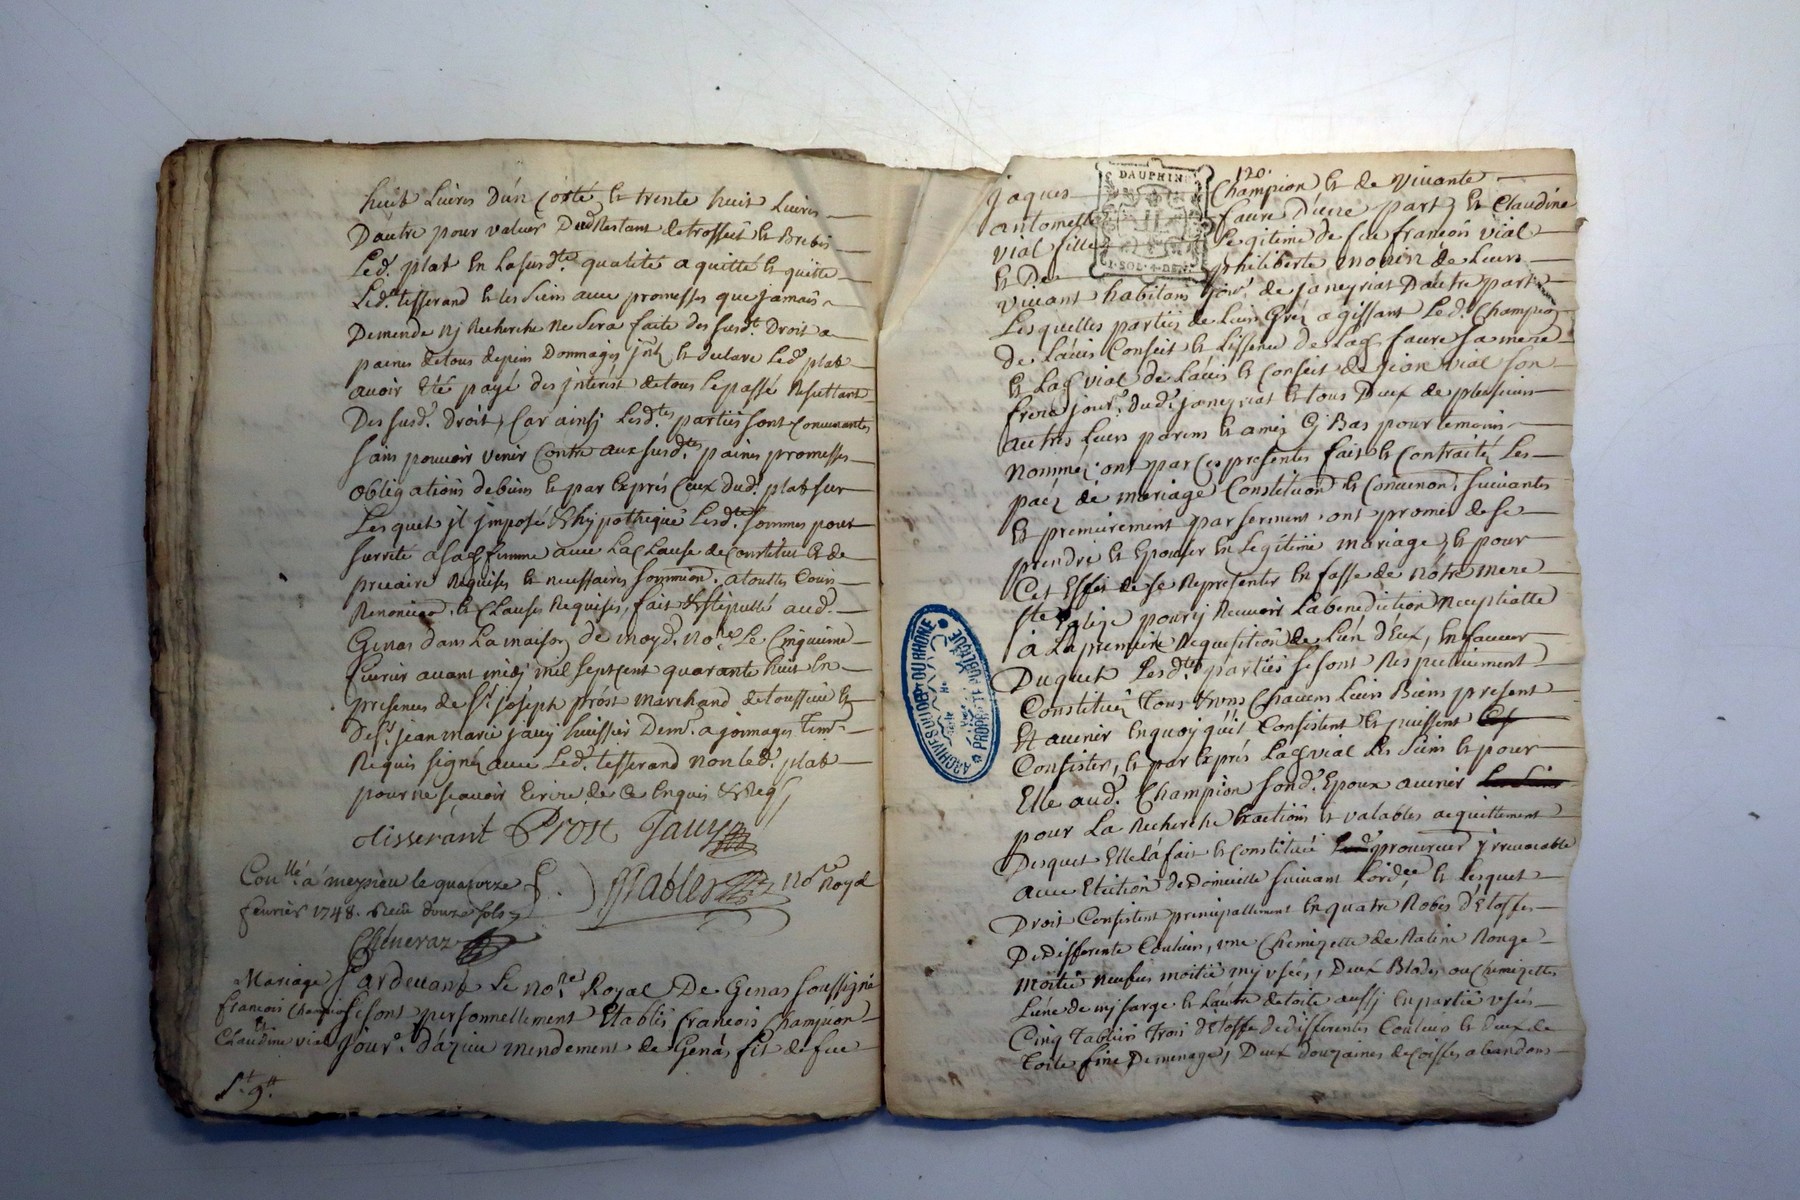 huit Livres d'un Costé, et trente huit Livres
D'autre pour valeur Dud Restant de trosseit et Brebis
Led. plat En La susd.te qualité a quitté et quitte
Led. tisserand et les siens avec promesses que jamais
Demende nj Recherche ne sera faite des susd.t Droit a
paines de tous depens Dommages jnt. et declare Led. plat
avoir Eté payé des jnterest de tous le passé Resultant
Des susd. Droit, Car ainsj Lesd.tes parties sont Convenantes
sans pouvoir venir Contre aux susd.tes paines promesses
obligations de biens et par Exprés Ceux dud. plat sur
Lesquels il jmpose & hypothique Lesd.te sommes pour
surreté a sa femme avec La Clause de Constitut et de
precaire Requises et necessaires soumition. a touttes Cours
Renoncion. et Clauses Requises, fait & stipullé aud.
Genas dans La maison de moyd. no.re Le Cinquieme
fevrier avant midj mil sept cent quarante huit En
presences de S.r joseph prost marchand de toussieu Et
de S.r jean marie jauy huissier Dem.t a jonnages tem.
Requis signé avec Led. tisserand non Led. plat
pour ne sçavoir Ecrire de Ce Enquis & Req
tisserant Prost Jauy
Con.llé a meyzieu le quatorze
fevrier 1748. Reçu douze sols
not.re Royal
Cheneraz
Mariage
françois Champion
Et
Claudine vial
Pardevant Le no.re Royal De Genas soussigné
se sont personnellement Etablis françois Champion
jour.r d'azieu mendement de Genas fils de feu
120.
DAUPHINE
1·SOL·4·DEN
jaques Champion et de vivante
antoinette faure D'une part, Et Claudine
vial fille Legitime de feu françois vial
Et De philiberte morin de Leurs
vivant habitans jour. de janeyriat D'autre part
Lesquelles parties de Leurs Grez agissant Led. Champion
de L'avis Conseit et Lissence de Lad. faure sa mere
et Lad. vial de L'avis et Conseit de jean vial son
frere jour. dud. janeyriat et tous Deux de plusieurs
autres Leurs parens et amis Cj Bas pour temoins
Nommez ont par Ces presentes fait et Contraité Les
paéz de mariage Constitution et Convenon. suivantes
Et premierement par serment ont promis de se
prendre et Epouser En Legitime mariage, et pour
Cet Effet de se Representer En fasse de nôtre mere
s.te Eglize pour ij Recevoir La benediction nuptialle
à La premiere Requisition de L'un d'Eux, En faveur
Duquel Lesd.tes parties se sont Respectivement
Constitué Tous & uns Chacuns Leurs Biens present
Et avenir En quoy qu'il Consistent et puissent
Consister, et par Exprés Lad. vial Les siens et pour
Elle aud. Champion sond. Epoux avenir
pour La Recherche Exactions et valables acquittement
Desquels Elle L'a fait et Constitué procureur jrrevocable
avec Election de Domicille suivant L'ord.ce et Lesquels
Droit Consistent principallement En quatre Robes d'Etoffes
De differente Couleurs, une Chemizette de Ratine Rouge
moitié neufves moitié mj usées, Deux Blodes ou Chemizettes
L'une de mj sarge et L'autre de toile aussj En partie usés
Cinq Tabliers Trois d'Etoffe de differentes Couleurs et Deux de
Toile fine De menage, Deux douzaines de Coiffes a bandons
ARCHIVES DU DEPT DU RHÔNE
PROPRIÉTÉ PUBLIQUE